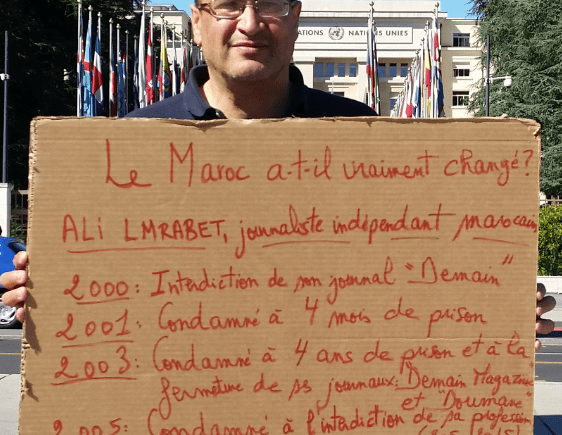 NATIONS UNIES
Le Maroc a-t-il vraiment changé?
ALi LMRABET, journaliste indépendant marocain
2000: Interdiction de son journal "Demain"
2001: Condamné à 4 mois de prison
2003: Condamné à 4 ans de prison et à la
fermeture de ss journaux: "Demain Magazine"
et "Doumane"
2005: Condamné à l'interdiction de sa profession